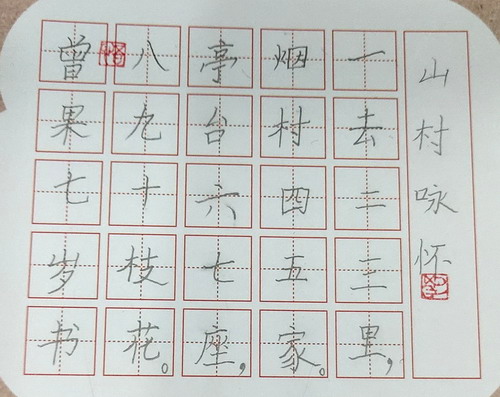 山村咏怀
一去二三里，
烟村四五家。
亭台六七座，
八九十枝花。
曾果七岁书